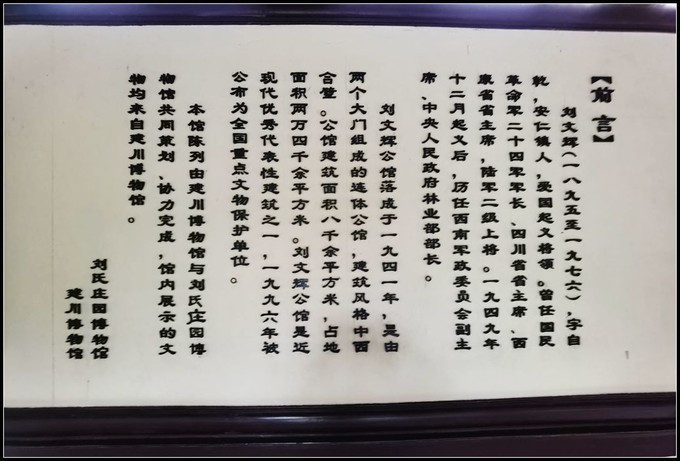 【前言】
刘文辉(一八九五至一九七六),字自
乾,安仁镇人,爱国起义将领。曾任国民
革命军二十四军军长、四川省省主席、西
康省省主席,陆军二级上将。一九四九年
十二月起义后,历任西南军政委员会副主
席、中央人民政府林业部部长。
刘文辉公馆落成于一九四一年,是由
两个大门组成的连体公馆,建筑风格中西
合璧。公馆建筑面积八千余平方米,占地
面积两万四千余平方米。刘文辉公馆是近
现代优秀代表性建筑之一,一九九六年被
公布为全国重点文物保护单位。
本馆陈列由建川博物馆与刘氏庄园博
物馆共同策划、协力完成,馆内展示的文
物均来自建川博物馆。
刘氏庄园博物馆
建川博物馆